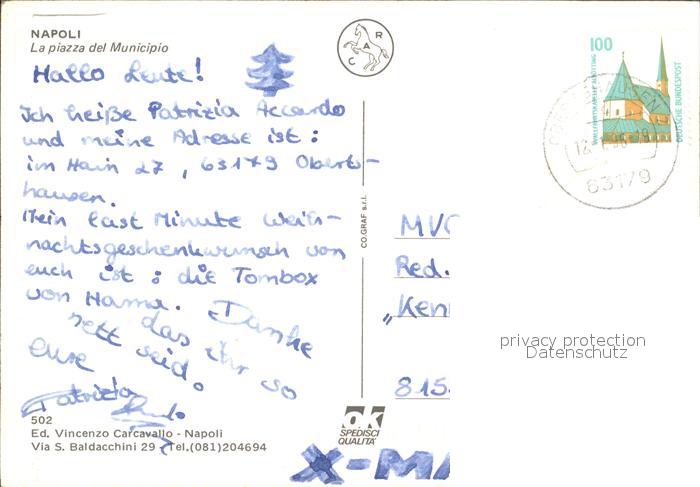 NAPOLI
La piazza del Municipio
Hallo Leute!
Ich heiße Patrizia Accardo
und meine Adresse ist:
im Hain 27, 63179 Oberts-
hausen.
Mein last Minute Weih-
nachtsgeschenkwunsch von
euch ist: die Tombox
von Hama. Danke
das ihr so
nett seid.
eure
Patrizia
502
Ed. Vincenzo Carcavallo - Napoli
Via S. Baldacchini 29 - Tel.(081)204694
C A R
CO.GRAF s.r.l.
ok
SPEDISCI
QUALITA'
X-MA
100
WALLFAHRTSKAPELLE ALTÖTTING
DEUTSCHE BUNDESPOST
63179
MVG
Red.
„Ken
815
privacy protection
Datenschutz